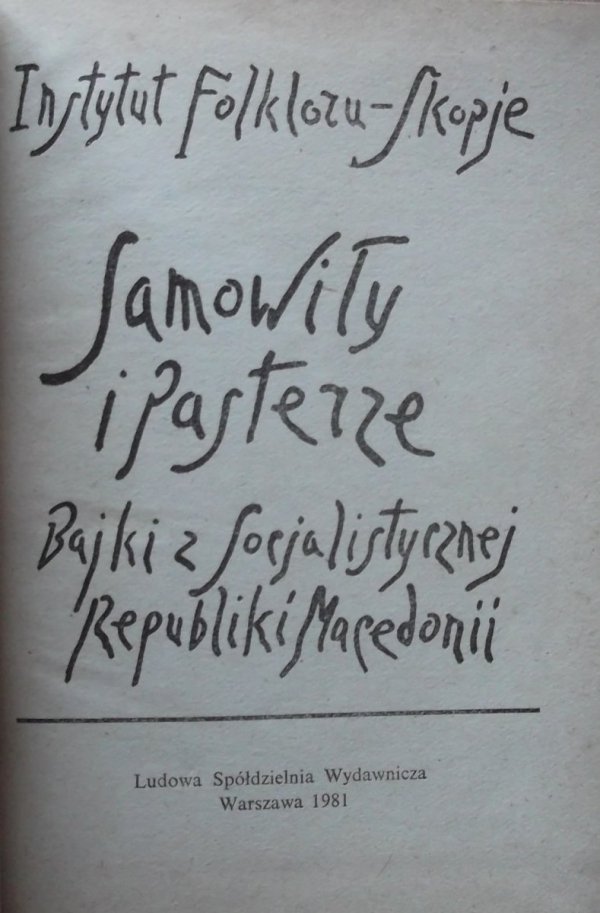 Instytut Folkloru-Skopje
Samowiły
i Pasterze
Bajki z Socjalistycznej
Republiki Macedonii
Ludowa Spółdzielnia Wydawnicza
Warszawa 1981